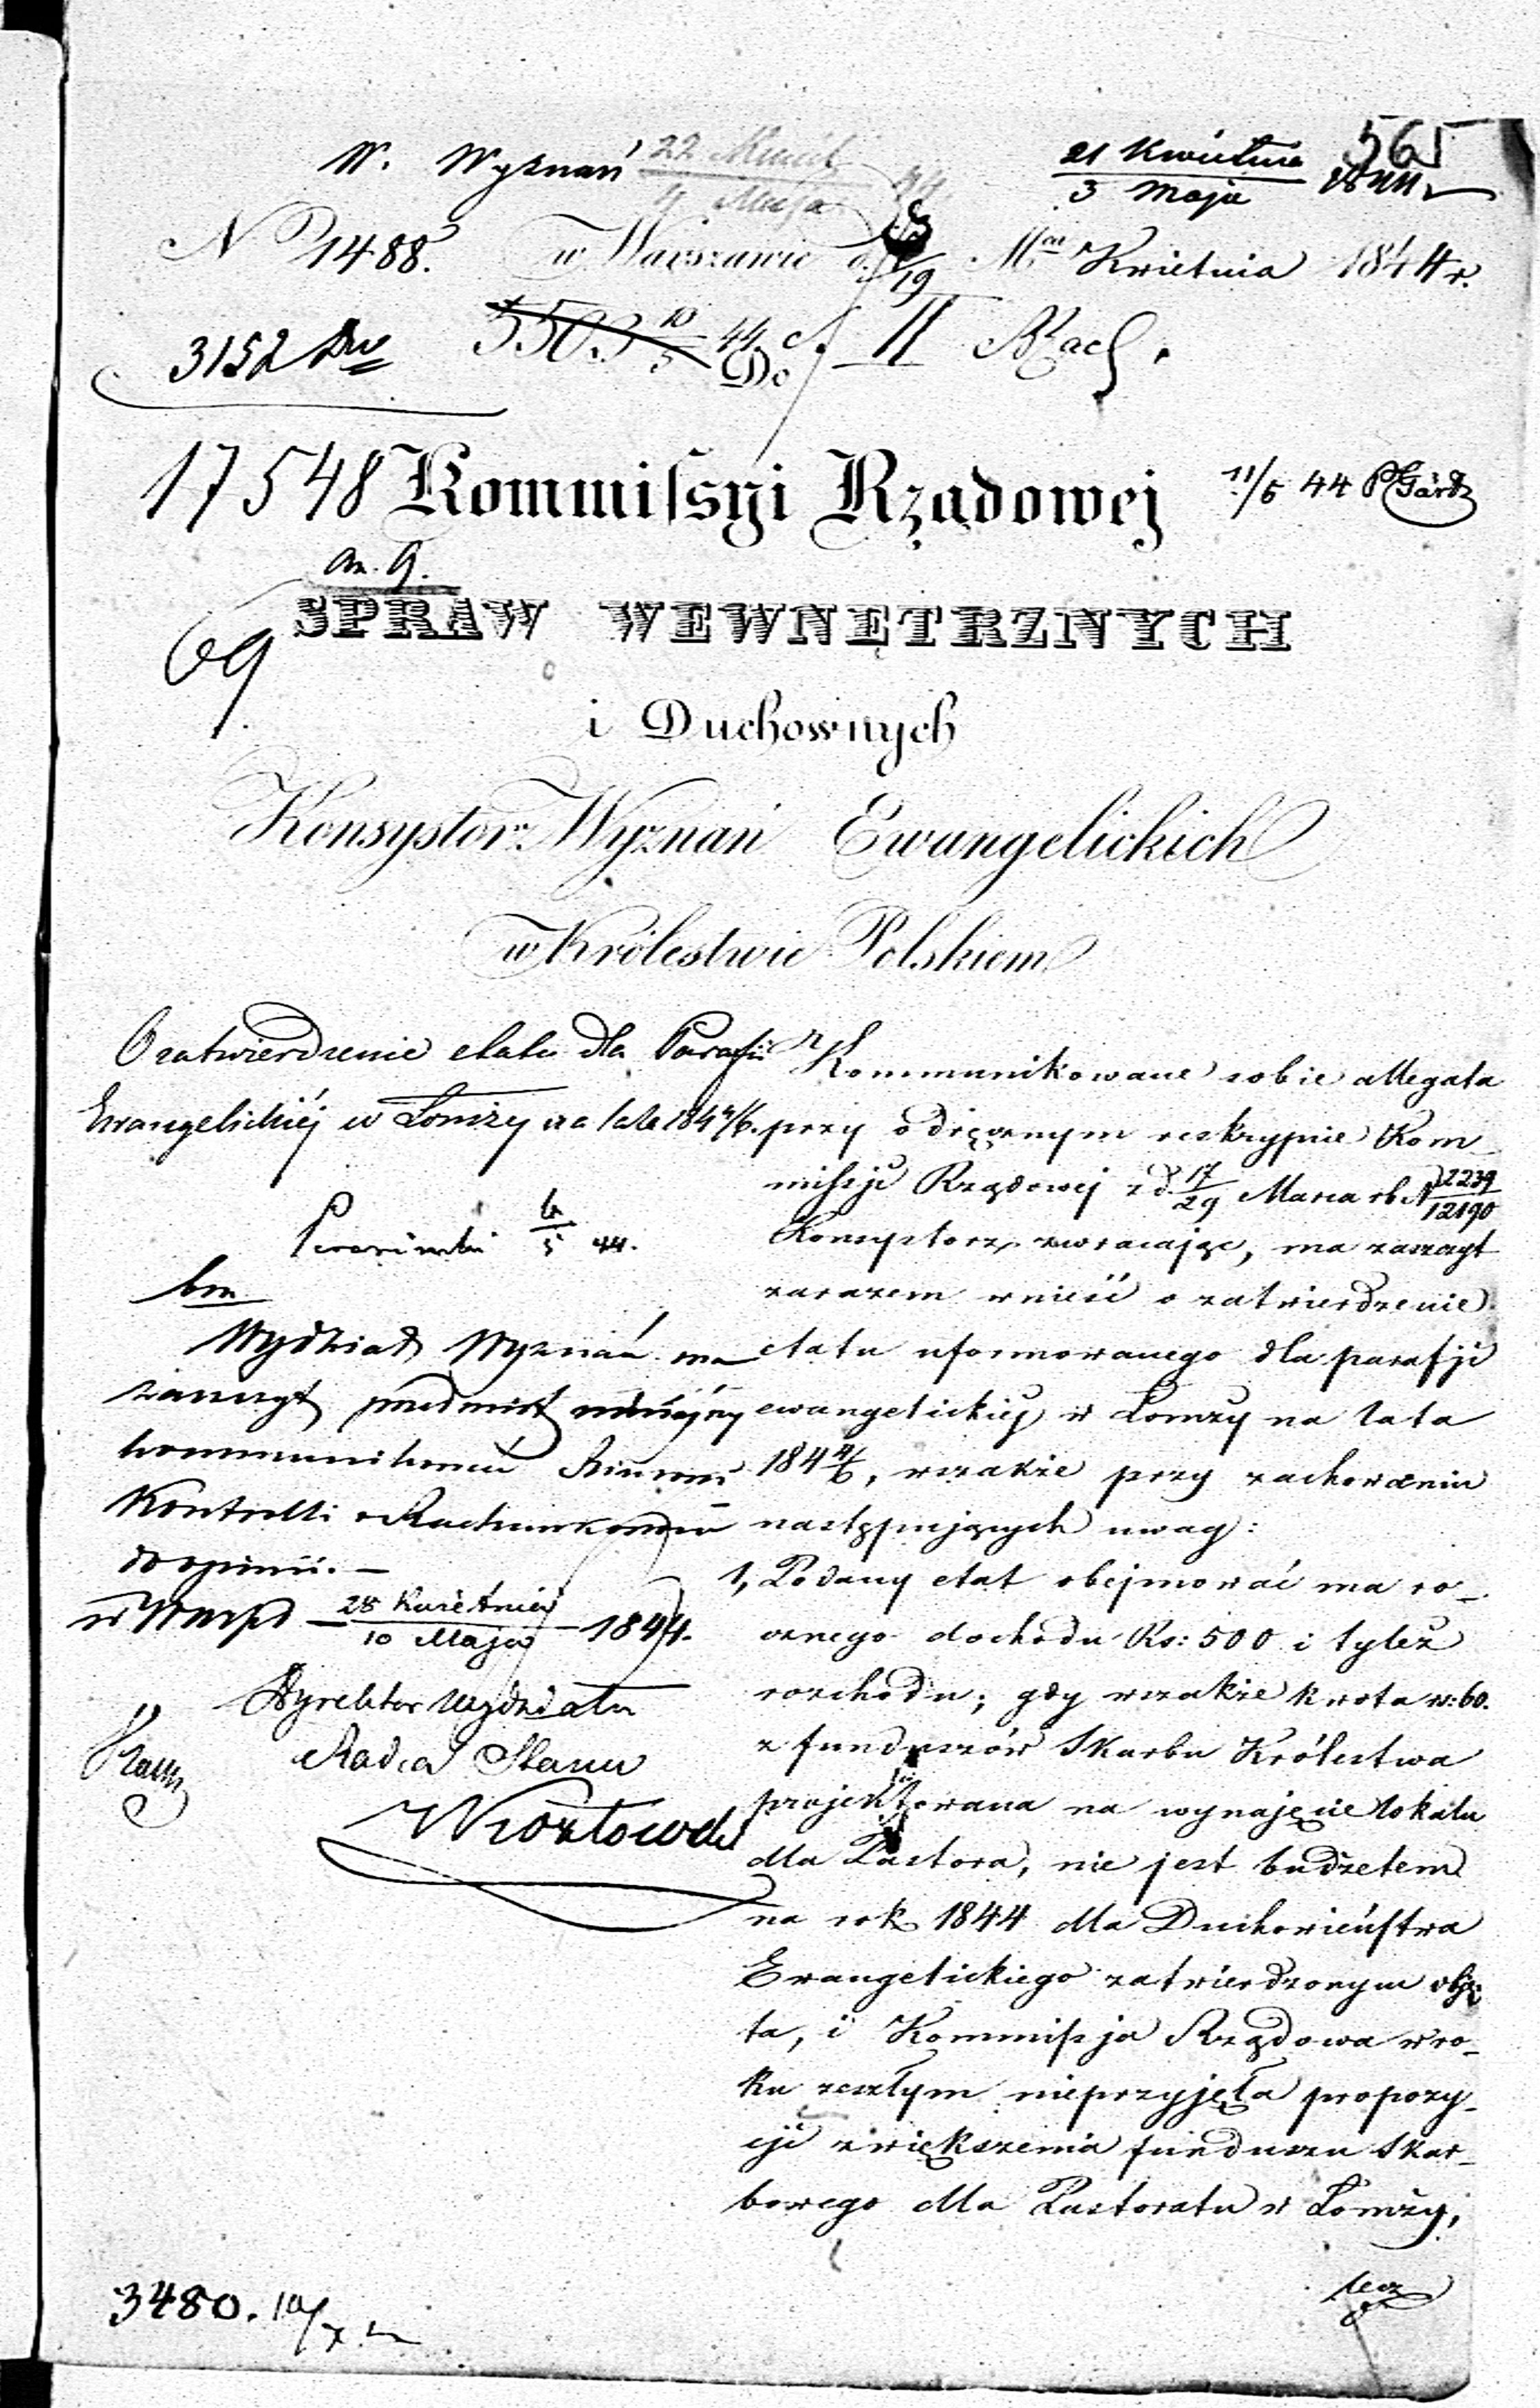 W. Wyznań 22 Kwiet 4 Maja 44
21 Kwietnia 3 Maja 1844 r
565
No 1488. w Warszawie d. /19 Mca Kwietnia 1844 r.
3152 5503 10/5 44 II Rach.
Do
17548 Kommissyi Rządowej 11/5 44
69
SPRAW WEWNĘTRZNYCH
i Duchownych
Konsystorz Wyznań Ewangelickich
w Królestwie Polskiem
O zatwierdzenie etatu dla Parafii
Ewangelickiéj w Łomży na lata 1844/6.
6/5 44.
bm
Wydział Wyznań ma
zaszczyt przedmiot niniejszy
kommunikować
Kontrolli i Rachunkowości
do opinii. —
28 Kwietnia 10 Maja 1844.
Dyrektor Wydziału
Radca Stanu
Kozłowski
Kommunikowane sobie allegata
przy odręcznym reskrypcie Kom-
missji Rządowej z d. 17/29 Marca rb N 2239/12190
Konsystorz zwracając, ma zaszczyt
zarazem wnieść o zatwierdzenie
etatu uformowanego dla parafji
ewangelickiej w Łomży na lata
1844/6, wszakże przy zachowaniu
następujących uwag:
1, Podany etat obejmować ma ro-
cznego dochodu Rs: 500 i tyleż
rozchodu; gdy wszakże kwota rs: 60.
z funduszów Skarbu Królestwa
projektowana na wynajęcie lokalu
dla Pastora, nie jest budżetem
na rok 1844 dla Duchowieństwa
Ewangelickiego zatwierdzonym obję-
ta, i Kommissja Rządowa w ro-
ku zeszłym nieprzyjęła propozy-
cji zwiększenia funduszu Skar-
bowego dla Pastoratu w Łomży,
lecz
3480. 10/